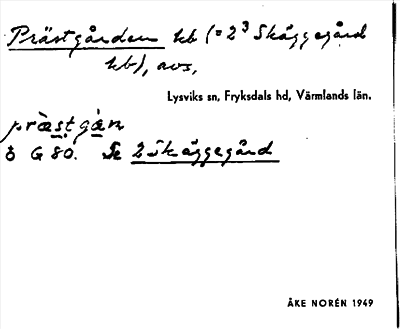 Prästgården hb (= 2³ Skäggegård
hb), avs,
Lysviks sn, Fryksdals hd, Värmlands län.
präs̲tgȧ̲n
ö G 80. Se 2 Skäggegård
ÅKE NORÉN 1949